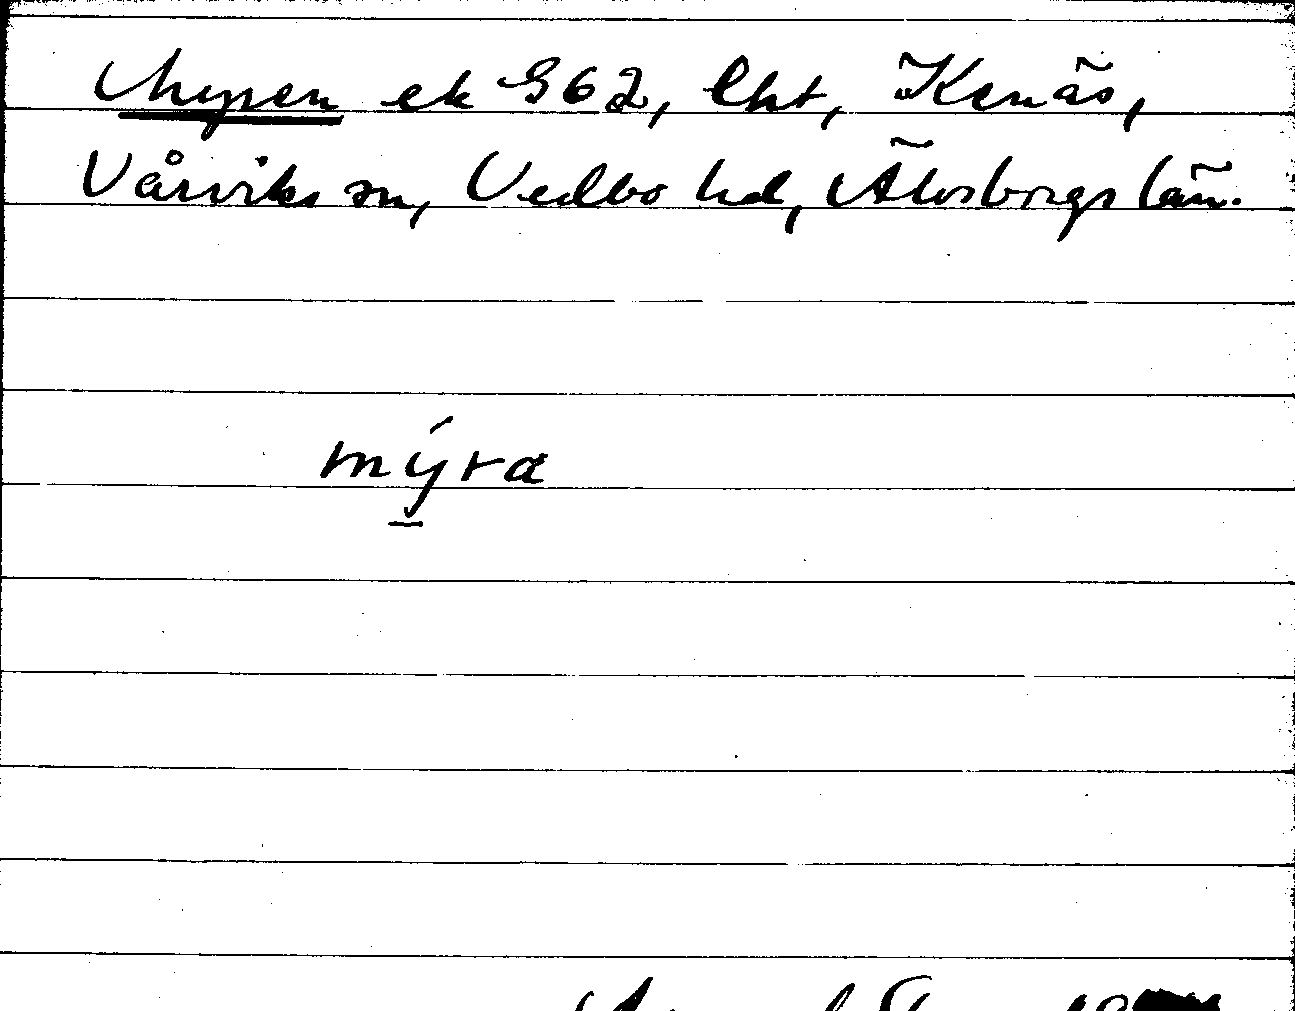 Myren ek 962, lht, Kenäs,
Vårviks sn, Vedbo hd, Älvsborgs län.
mýra